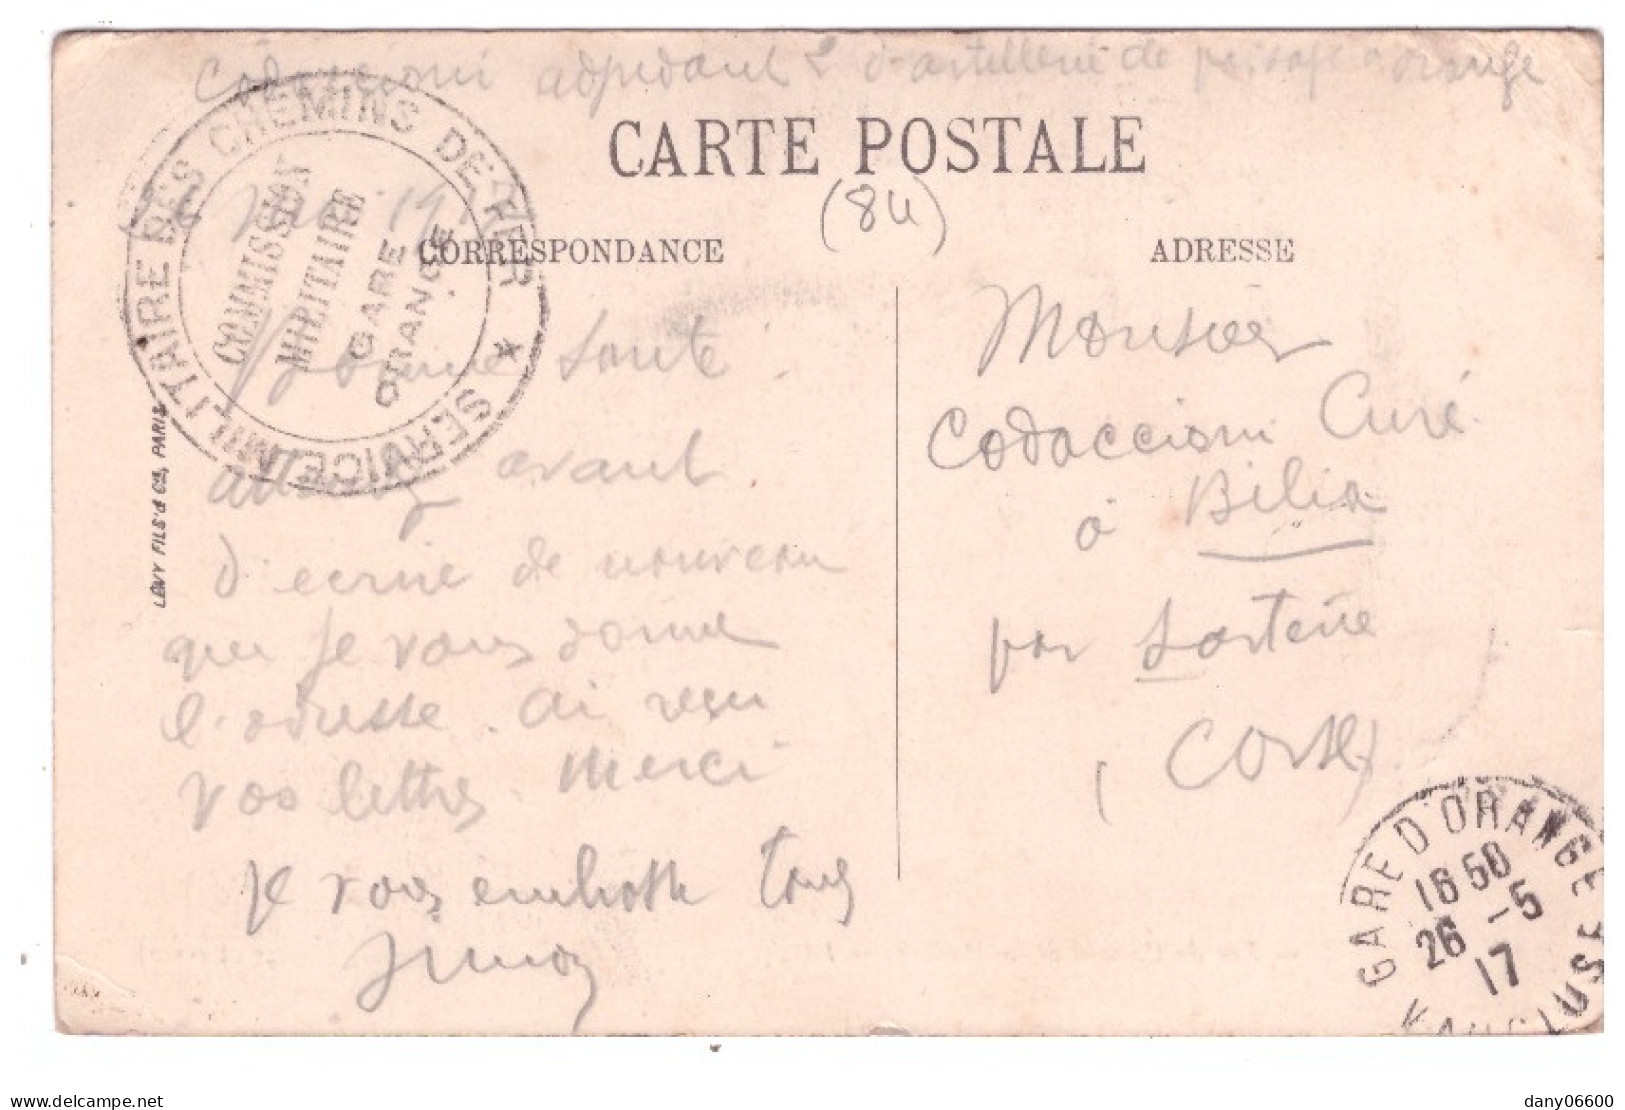 Codaccioni adjudant 2e d'artillerie de passage à Orange
CARTE POSTALE
(84)
CORRESPONDANCE
ADRESSE
SERVICE MILITAIRE DES CHEMINS DE FER *
COMMISSION
MILITAIRE
GARE
ORANGE
26 Mai 1917
LÉVY FILS & Cie, PARIS
bonne santé.
attendez avant
d'ecrire de nouveau
que je vous donne
l'adresse. Ai reçu
vos lettres Merci
Je vous embrasse tous
Simon
Monsieur
Codaccioni Curé
à Bilia
par Sartène
(Corse)
GARE D'ORANGE
16 50
26 -5
17
VAUCLUSE
dany06600
www.delcampe.net